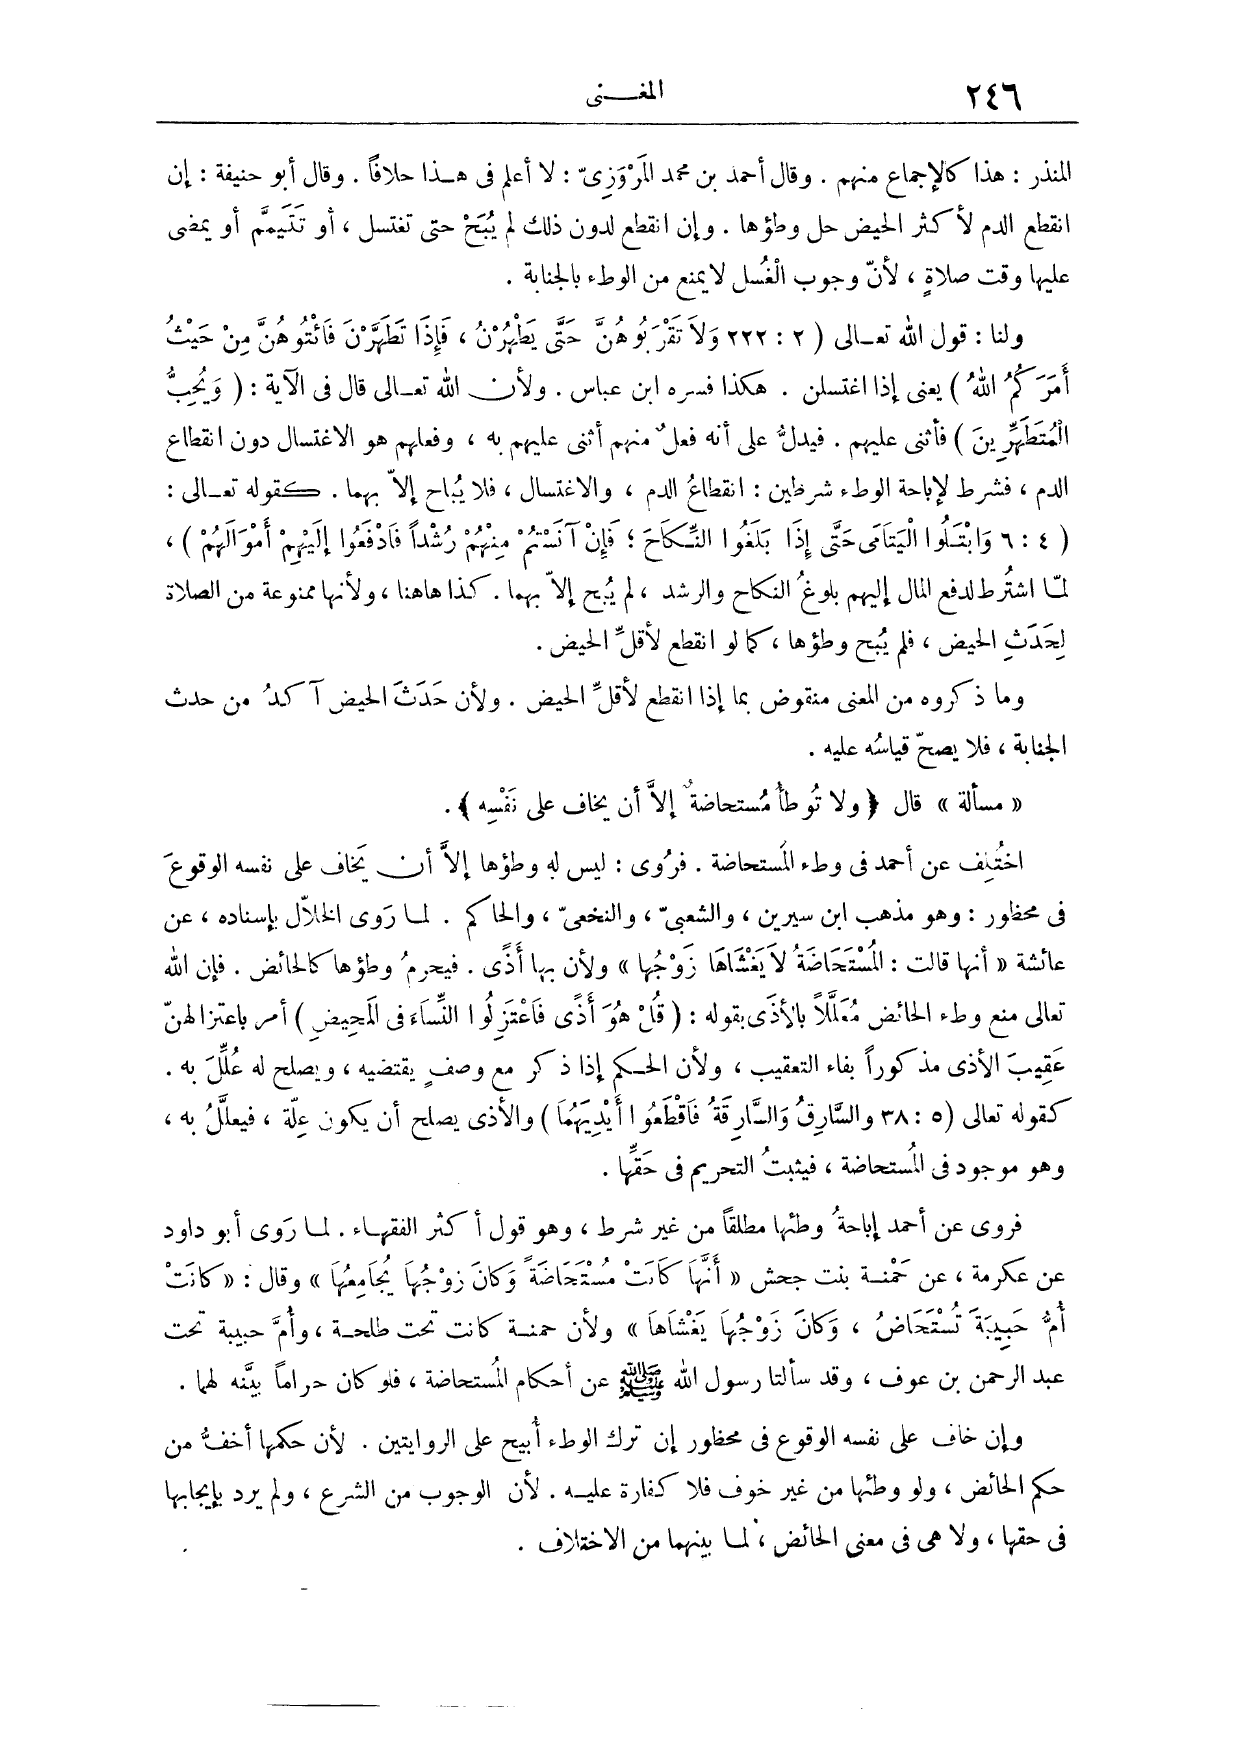 ٢٤٦
المغـــنى
المنذر : هذا كالإجماع منهم . وقال أحمد بن محمد المَرْوَزِىّ : لا أعلم فى هـذا خلافاً . وقال أبو حنيفة : إن
انقطع الدم لأكثر الحيض حل وطؤها . وإن انقطع لدون ذلك لم يُبَحْ حتى تغتسل ، أو تَتَيمَّم أو يمضى
عليها وقت صلاةٍ ، لأنّ وجوب الْغُسل لا يمنع من الوطء بالجنابة .
ولنا : قول الله تعـالى ( ٢ : ٢٢٢ وَلاَ تَقْرَبُوهُنَّ حَتَّى يَطْهُرْنَ ، فَإِذَا تَطَهَّرْنَ فَائْتُوهُنَّ مِنْ حَيْثُ
أَمَرَكُمُ اللهُ ) يعنى إذا اغتسلن . هكذا فسره ابن عباس . ولأن الله تعـالى قال فى الآية : ( وَيُحِبُّ
الْمُتَطَهِّرِينَ ) فأثنى عليهم . فيدلُّ على أنه فعلٌ منهم أثنى عليهم به ، وفعلهم هو الاغتسال دون انقطاع
الدم ، فشرط لإباحة الوطء شرطين : انقطاعُ الدم ، والاغتسال ، فلا يُباح إلاّ بهما . كقوله تعـالى :
( ٤ : ٦ وَابْتَلُوا الْيَتَامَى حَتَّى إِذَا بَلَغُوا النِّكَاحَ ؛ فَإِنْ آنَسْتُمْ مِنْهُمْ رُشْداً فَادْفَعُوا إِلَيْهِمْ أَمْوَالَهُمْ ) ،
لمّا اشتُرط لدفع المال إليهم بلوغُ النكاح والرشد ، لم يُبح إلاّ بهما . كذا هاهنا ، ولأنها ممنوعة من الصلاة
لِحَدَثِ الحيض ، فلم يُبح وطؤها ، كما لو انقطع لأقلِّ الحيض .
وما ذكروه من المعنى منقوض بما إذا انقطع لأقلِّ الحيض . ولأن حَدَثَ الحيض آكدُ من حدث
الجنابة ، فلا يصحّ قياسُه عليه .
« مسألة » قال ﴿ ولا تُوطأُ مُستحاضةٌ إلاَّ أن يخاف على نَفْسِه ﴾ .
اختُلِف عن أحمد فى وطء المُستحاضة . فرُوى : ليس له وطؤها إلاَّ أن يَخاف على نفسه الوقوعَ
فى محظور : وهو مذهب ابن سيرين ، والشعبىّ ، والنخعىّ ، والحاكم . لمـا رَوى الخلاّل بإسناده ، عن
عائشة « أنها قالت : الْمُسْتَحَاضَةُ لاَ يَغْشَاهَا زَوْجُها » ولأن بها أَذًى . فيحرمُ وطؤها كالحائض . فإن الله
تعالى منع وطء الحائض مُعَلَّلاً بالأذَى بقوله : ( قُلْ هُوَ أَذًى فَاعْتَزِلُوا النِّسَاءَ فى الْمَحِيضِ ) أمر باعتزالهنّ
عَقِيبَ الأذى مذكوراً بفاء التعقيب ، ولأن الحـكم إذا ذكر مع وصفٍ يقتضيه ، ويصلح له عُلِّلَ به .
كقوله تعالى ( ٥ : ٣٨ والسَّارِقُ وَالسَّارِقَةُ فَاقْطَعُوا أَيْدِيَهُمَا ) والأذى يصلح أن يكون عِلّة ، فيعلَّلُ به ،
وهو موجود فى المُستحاضة ، فيثبتُ التحريم فى حَقِّها .
فروى عن أحمد إباحةُ وطئها مطلقاً من غير شرط ، وهو قول أكثر الفقهـاء . لمـا رَوى أبو داود
عن عكرمة ، عن حَمْنـة بنت جحش « أَنَّهَا كَانَتْ مُسْتَحَاضَةً وَكَانَ زَوْجُهَا يُجَامِعُهَا » وقال : « كَانَتْ
أُمُّ حَبِيبَةَ تُسْتَحَاضُ ، وَكَانَ زَوْجُهَا يَغْشَاهَا » ولأن حمنـة كانت تحت طلحـة ، وأُمَّ حبيبة تحت
عبد الرحمن بن عوف ، وقد سألتا رسول الله ﷺ عن أحكام المُستحاضة ، فلو كان حراماً بيَّنه لهما .
وإن خاف على نفسه الوقوع فى محظور إن ترك الوطء أُبيح على الروايتين . لأن حكمها أخفُّ من
حكم الحائض ، ولو وطئها من غير خوف فلا كفارة عليـه . لأن الوجوب من الشرع ، ولم يرد بإيجابها
فى حقها ، ولا هى فى معنى الحائض ، لمـا بينهما من الاختلاف .